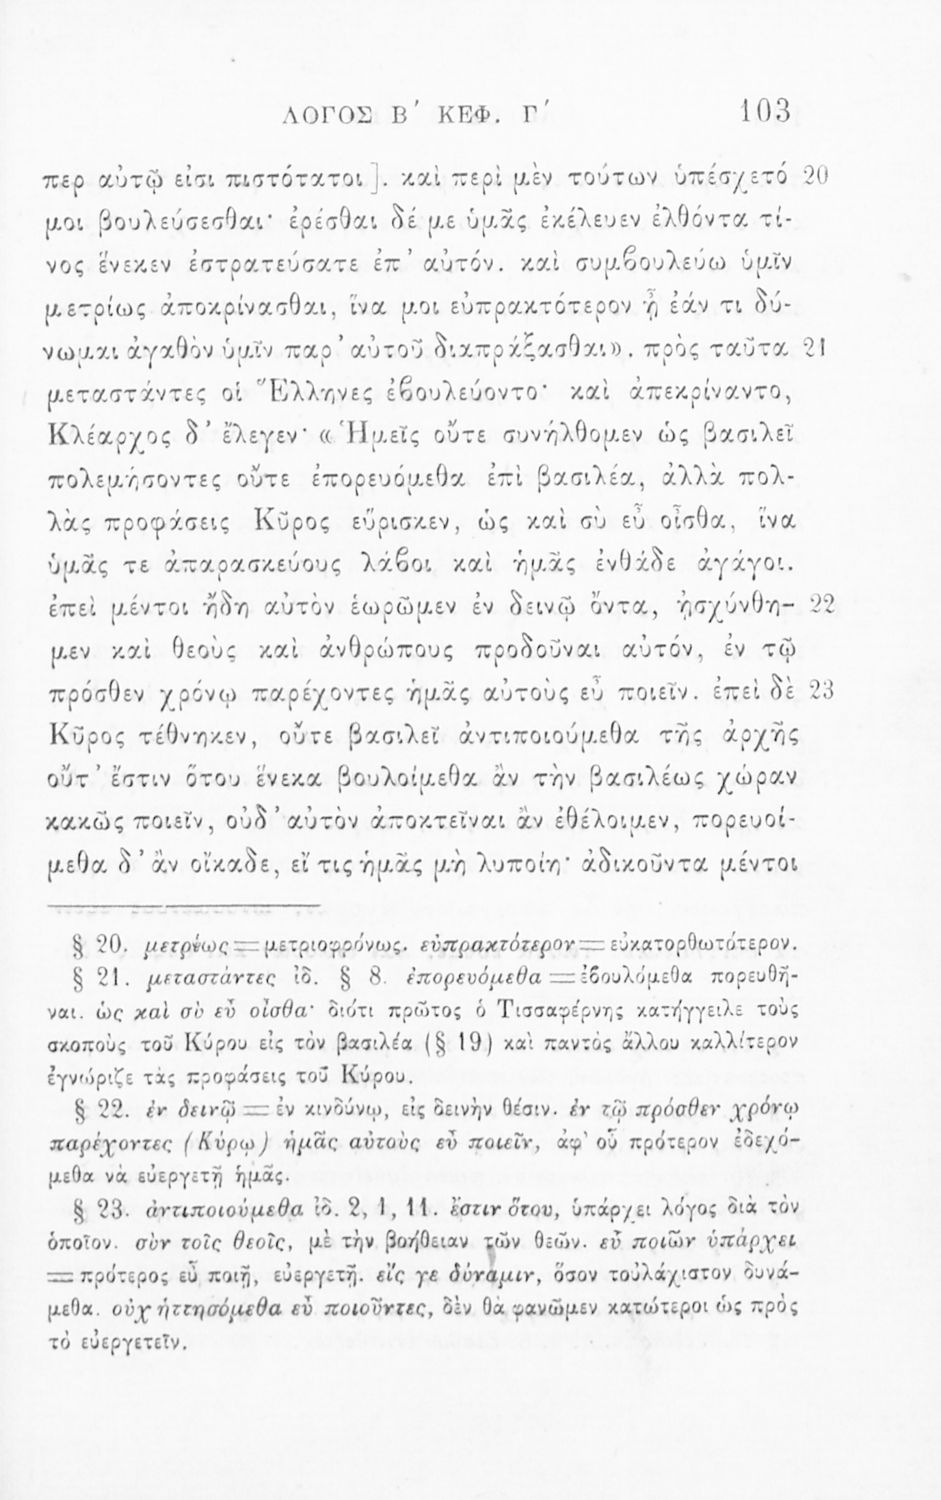 ΛΟΓΟΣ Β΄ ΚΕΦ. Γ΄ 103
περ αὐτῷ εἰσι πιστότατοι]. καὶ περὶ μὲν τούτων ὑπέσχετό 20
μοι βουλεύσεσθαι· ἐρέσθαι δέ με ὑμᾶς ἐκέλευεν ἐλθόντα τί-
νος ἕνεκεν ἐστρατεύσατε ἐπ’ αὐτόν. καὶ συμβουλεύω ὑμῖν
μετρίως ἀποκρίνασθαι, ἵνα μοι εὐπρακτότερον ᾖ ἐάν τι δύ-
νωμαι ἀγαθὸν ὑμῖν παρ’ αὐτοῦ διαπράξασθαι». πρὸς ταῦτα 21
μεταστάντες οἱ Ἕλληνες ἐβουλεύοντο· καὶ ἀπεκρίναντο,
Κλέαρχος δ’ ἔλεγεν· «Ἡμεῖς οὔτε συνήλθομεν ὡς βασιλεῖ
πολεμήσοντες οὔτε ἐπορευόμεθα ἐπὶ βασιλέα, ἀλλὰ πολ-
λὰς προφάσεις Κῦρος εὕρισκεν, ὡς καὶ σὺ εὖ οἶσθα, ἵνα
ὑμᾶς τε ἀπαρασκεύους λάβοι καὶ ἡμᾶς ἐνθάδε ἀγάγοι.
ἐπεὶ μέντοι ἤδη αὐτὸν ἑωρῶμεν ἐν δεινῷ ὄντα, ᾐσχύνθη- 22
μεν καὶ θεοὺς καὶ ἀνθρώπους προδοῦναι αὐτόν, ἐν τῷ
πρόσθεν χρόνῳ παρέχοντες ἡμᾶς αὐτοὺς εὖ ποιεῖν. ἐπεὶ δὲ 23
Κῦρος τέθνηκεν, οὔτε βασιλεῖ ἀντιποιούμεθα τῆς ἀρχῆς
οὔτ’ ἔστιν ὅτου ἕνεκα βουλοίμεθα ἂν τὴν βασιλέως χώραν
κακῶς ποιεῖν, οὐδ’ αὐτὸν ἀποκτεῖναι ἂν ἐθέλοιμεν, πορευοί-
μεθα δ’ ἂν οἴκαδε, εἴ τις ἡμᾶς μὴ λυποίη· ἀδικοῦντα μέντοι
§ 20. μετρίως = μετριοφρόνως. εὐπρακτότερον = εὐκατορθωτότερον.
§ 21. μεταστάντες ἰδ. § 8. ἐπορευόμεθα = ἐβουλόμεθα πορευθῆ-
ναι. ὡς καὶ σὺ εὖ οἶσθα· διότι πρῶτος ὁ Τισσαφέρνης κατήγγειλε τοὺς
σκοποὺς τοῦ Κύρου εἰς τὸν βασιλέα (§ 19) καὶ παντὸς ἄλλου καλλίτερον
ἐγνώριζε τὰς προφάσεις τοῦ Κύρου.
§ 22. ἐν δεινῷ = ἐν κινδύνῳ, εἰς δεινὴν θέσιν. ἐν τῷ πρόσθεν χρόνῳ
παρέχοντες (Κύρῳ) ἡμᾶς αὐτοὺς εὖ ποιεῖν, ἀφ’ οὗ πρότερον ἐδεχό-
μεθα νὰ εὐεργετῇ ἡμᾶς.
§ 23. ἀντιποιούμεθα ἰδ. 2, 1, 11. ἔστιν ὅτου, ὑπάρχει λόγος διὰ τὸν
ὁποῖον. σὺν τοῖς θεοῖς, μὲ τὴν βοήθειαν τῶν θεῶν. εὖ ποιῶν ὑπάρχει
= πρότερος εὖ ποιῇ, εὐεργετῇ. εἴς γε δύναμιν, ὅσον τοὐλάχιστον δυνά-
μεθα. οὐχ ἡττησόμεθα εὖ ποιοῦντες, δὲν θὰ φανῶμεν κατώτεροι ὡς πρὸς
τὸ εὐεργετεῖν.